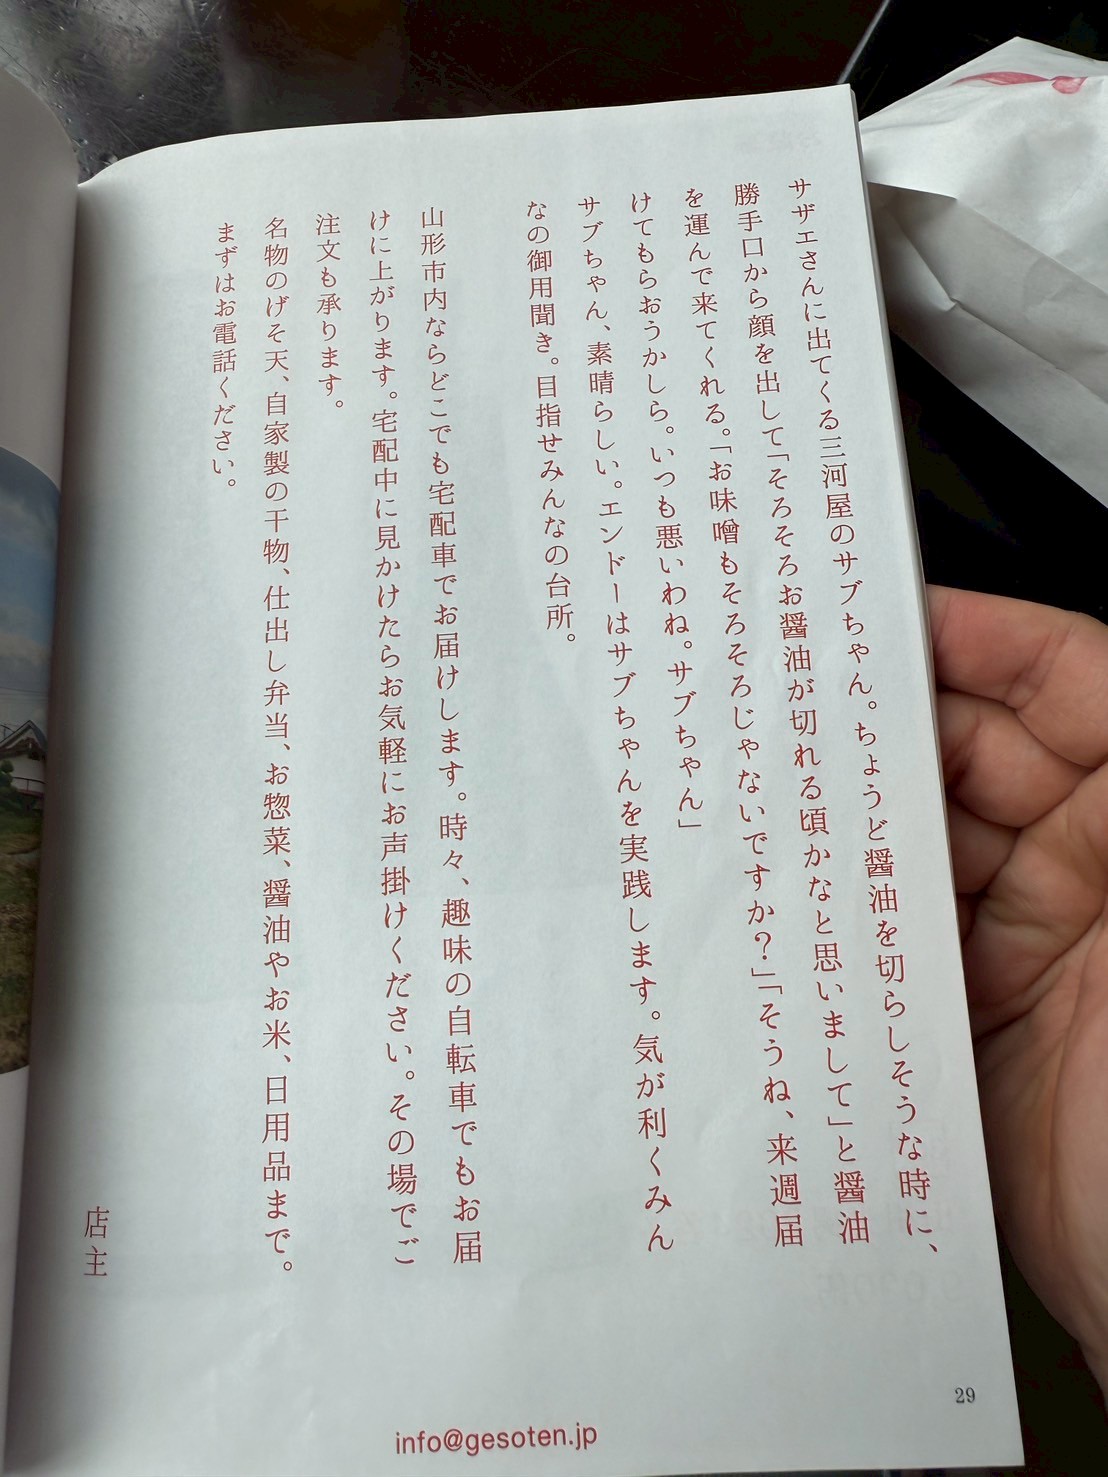 サザエさんに出てくる三河屋のサブちゃん。ちょうど醤油を切らしそうな時に、
勝手口から顔を出して「そろそろお醤油が切れる頃かなと思いまして」と醤油
を運んで来てくれる。「お味噌もそろそろじゃないですか？」「そうね、来週届
けてもらおうかしら。いつも悪いわね。サブちゃん」
サブちゃん、素晴らしい。エンドーはサブちゃんを実践します。気が利くみん
なの御用聞き。目指せみんなの台所。
山形市内ならどこでも宅配車でお届けします。時々、趣味の自転車でもお届
けに上がります。宅配中に見かけたらお気軽にお声掛けください。その場でご
注文も承ります。
名物のげそ天、自家製の干物、仕出し弁当、お惣菜、醤油やお米、日用品まで。
まずはお電話ください。
店主
29
info@gesoten.jp